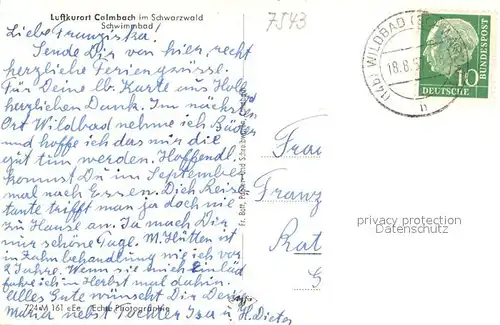 Luftkurort Calmbach im Schwarzwald
Schwimmbad
7543
Liebe Franziska!
Sende Dir von hier recht
herzliche Feriengrüsse.
Für Deine lb. Karte aus Holl.
herzlichen Dank. Im nächsten
Ort Wildbad nehme ich Bäder
und hoffe ich das mir die
gut tum werden. Hoffendl.
kommst Du im September
mal nach Essen. Dich Reise-
tante trifft man ja doch nie
zu Hause an. Ja mach Dir
nur schöne Tage. M. Hütten ist
in Zahnbehandlung
2 Jahre. Wenn sie mich einläd
fahre ich im Herbst mal dahin.
Alles Gute wünscht Dir Deine
Maria nebst Tochter Isa u. H. Dieter
724 M 161 Echte Photographie
WILDBAD
18.8.5
10
DEUTSCHE
BUNDESPOST
Frau
Franz
Rat
privacy protection
Datenschutz